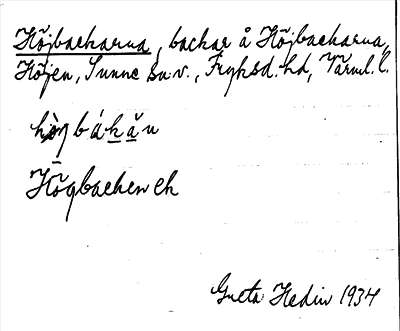 Höjbackarna, backar å Höjbackarna,
Höjen, Sunne sn v., Fryksd. hd, Värml. l.
Högbacken ek
Greta Hedin 1934